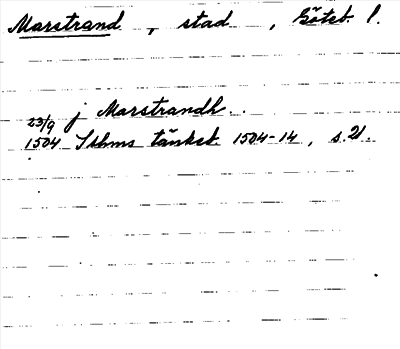 Marstrand, stad, Göteb l.
23/9 j Marstrandh.
1504 Sthms tänkeb. 1504-14, s. 21.